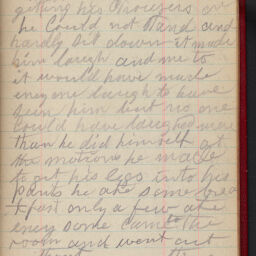 getting his Trousers on
he could not Stand and
hardly Sit down it made
him laugh and me to
it would have made
eney one laugh to have
seen him but no one
could have laughed more
than he did himself at
the motions he made
to get his legs into his
pants he ate some brea
kfast only a few ate
eney some came to the
room and went out